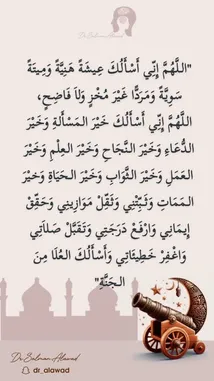 Dr.Salman Alawad
"اللَّهُمَّ إِنِّي أَسْأَلُكَ عِيشَةً هَنِيَّةً وَمِيتَةً
سَوِيَّةً وَمَرَدًّا غَيْرَ مُخْزٍ وَلاَ فَاضِحٍ،
اللَّهُمَّ إِنِّي أَسْأَلُكَ خَيْرَ المَسْأَلَةِ وَخَيْرَ
الدُّعَاءِ وَخَيْرَ النَّجَاحِ وَخَيْرَ العِلْمِ وَخَيْرَ
العَمَلِ وَخَيْرَ الثَّوَابِ وَخَيْرَ الحَيَاةِ وَخيرَ
المَمَاتِ وَثَبِّتْنِي وَثَقِّلْ مَوَازِينِي وَحَقِّقْ
إِيمَانِي وَارْفَعْ دَرَجَتِي وَتَقَبَّلْ صَلاَتِي
وَاغْفِرْ خَطِيئَاتِي وَأَسْأَلُكَ العُلَا مِنَ
الجَنَّةِ"
Dr.Salman Alawad
dr_alawad